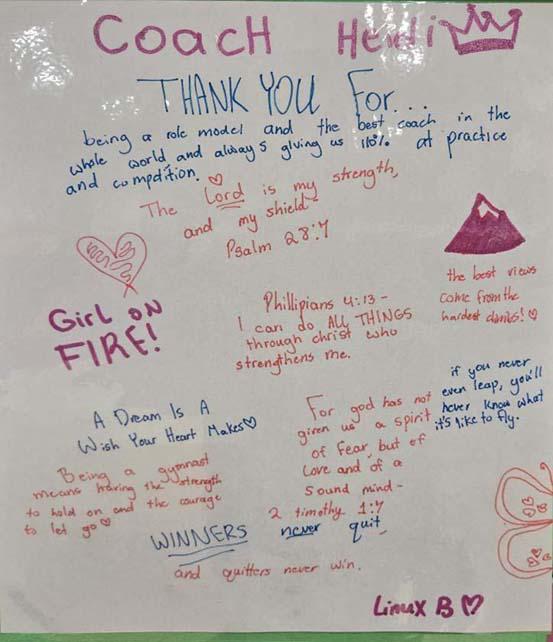 Coach Heidi
THANK YOU For...
being a role model and the best coach in the
whole world, and always giving us 110% at practice
and compdition.
The Lord is my strength,
and my shield-
Psalm 28:7
the best views
come from the
hardest climbs!
GIRL ON
FIRE!
Phillipians 4:13-
I can do ALL THINGS
through christ who
strengthens me.
if you never
even leap, you'll
never know what
it's like to fly.
A Dream Is A
Wish Your Heart Makes
For god has not
given us a spirit
of fear, but of
Love and of a
Sound mind-
2 timothy 1:7
Being a gymnast
means having the strength
to hold on and the courage
to let go
WINNERS never quit,
and quitters never win.
Linux B